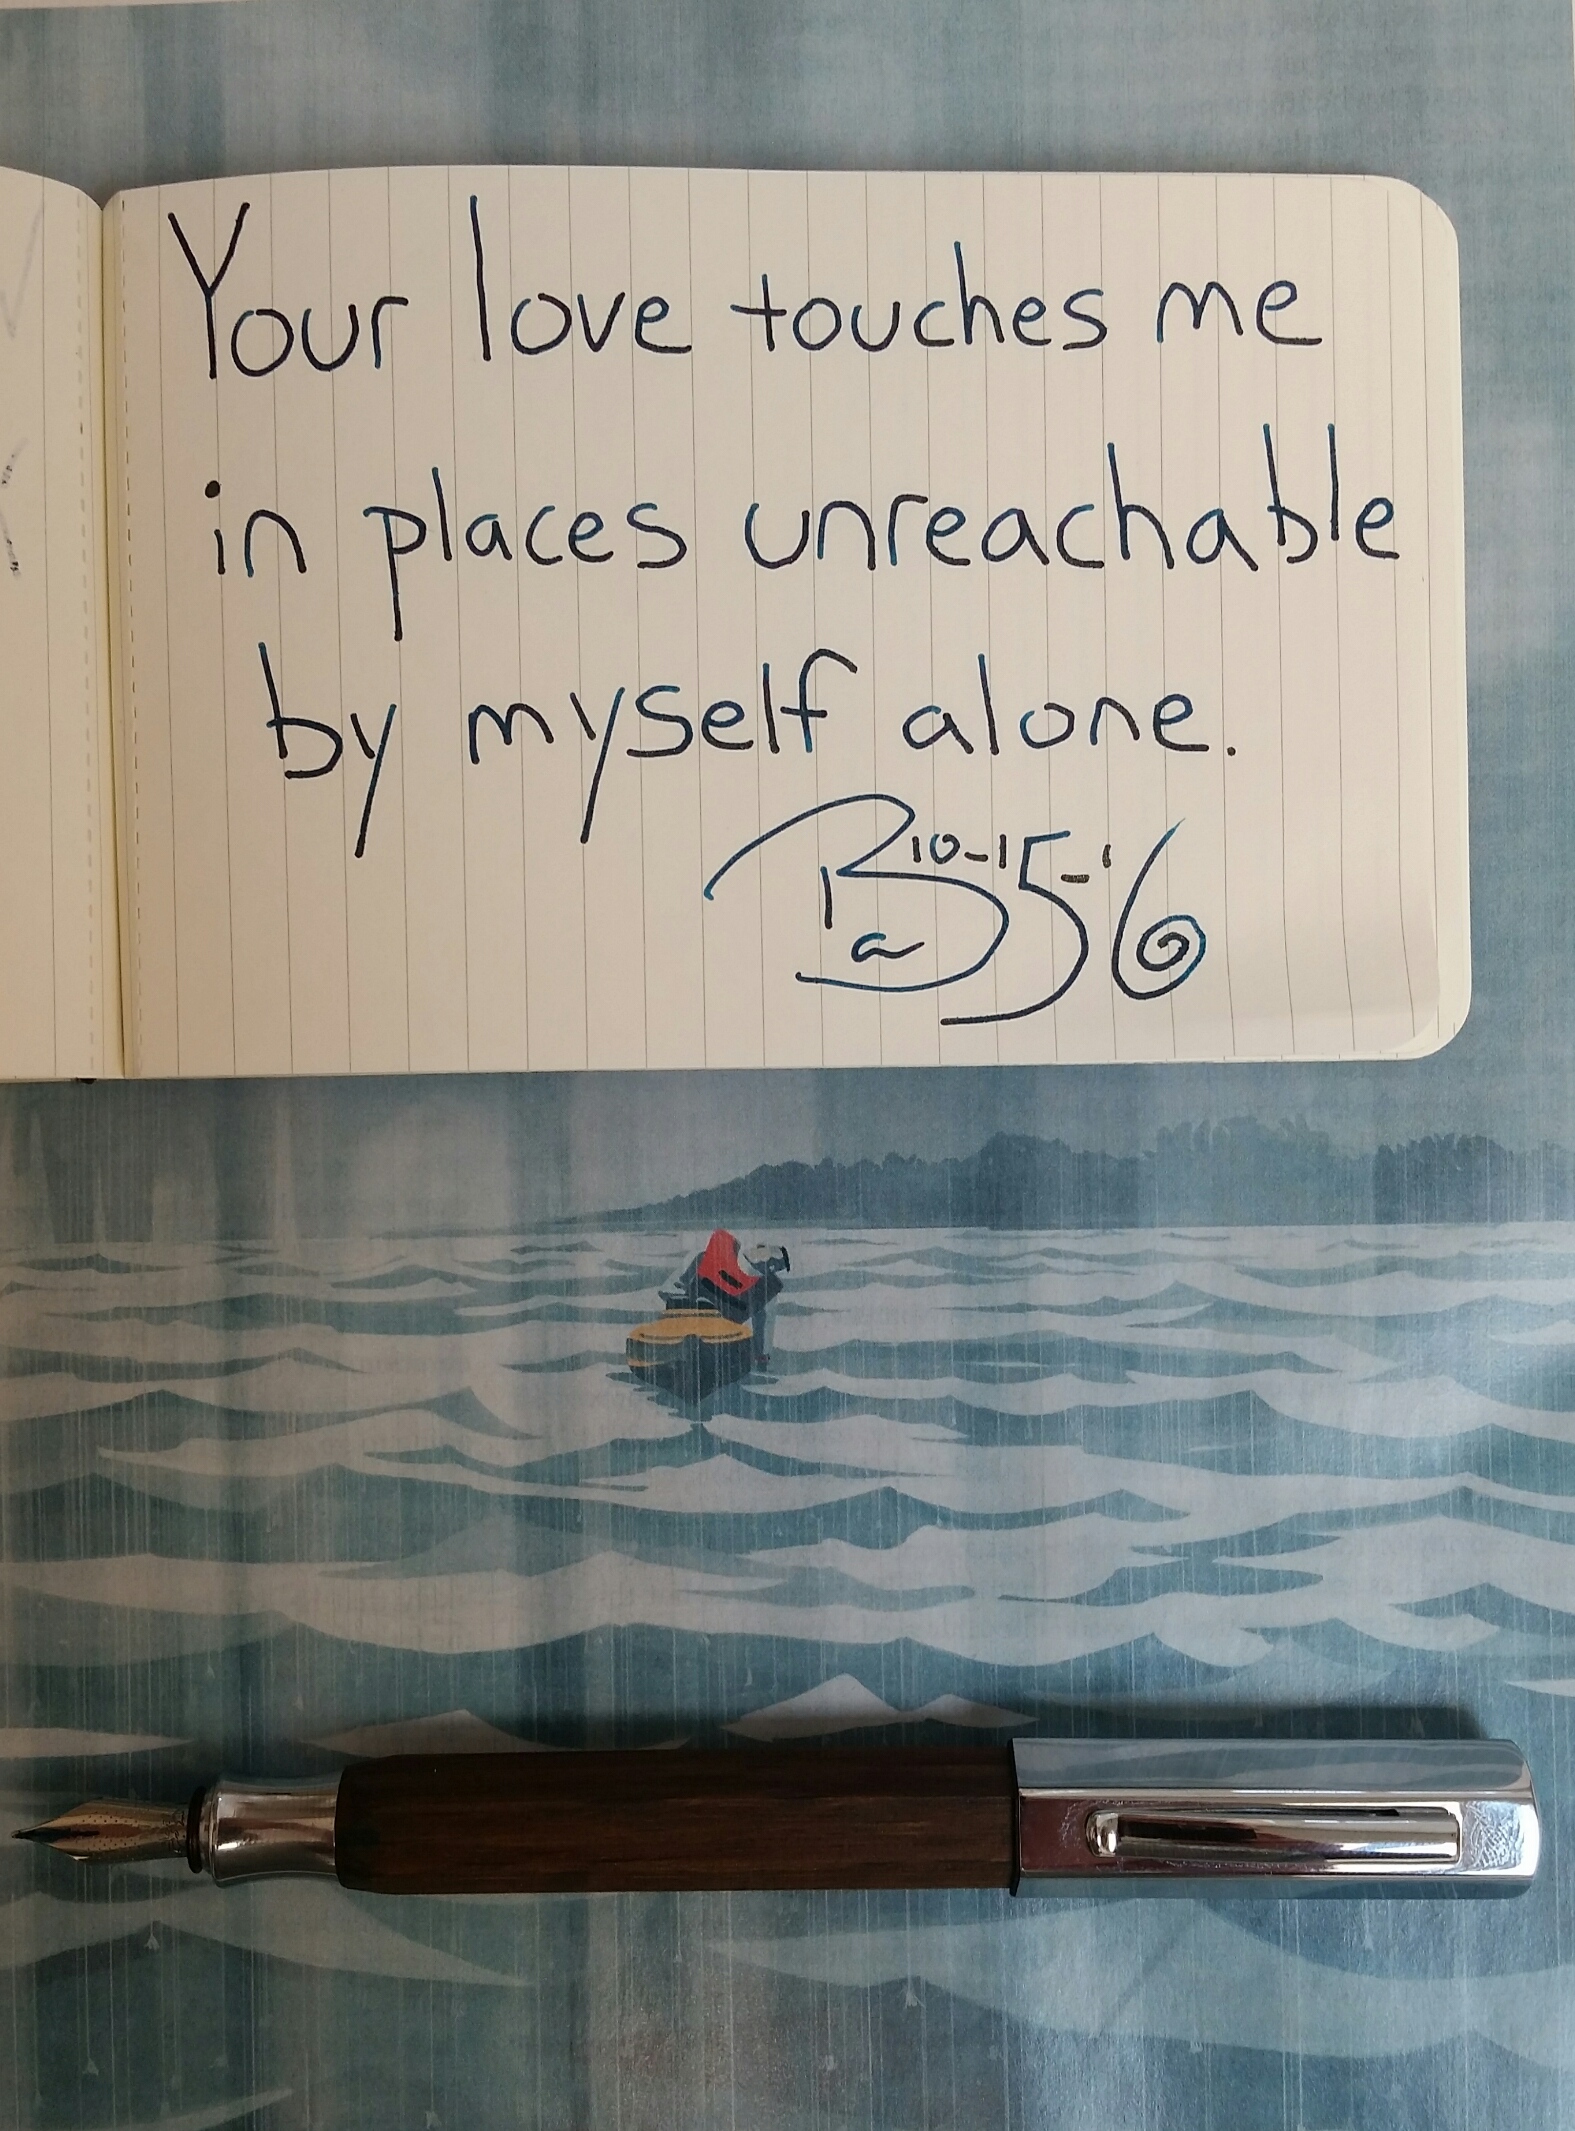 Your love touches me
in places unreachable
by myself alone.
Ba 10-15-'16